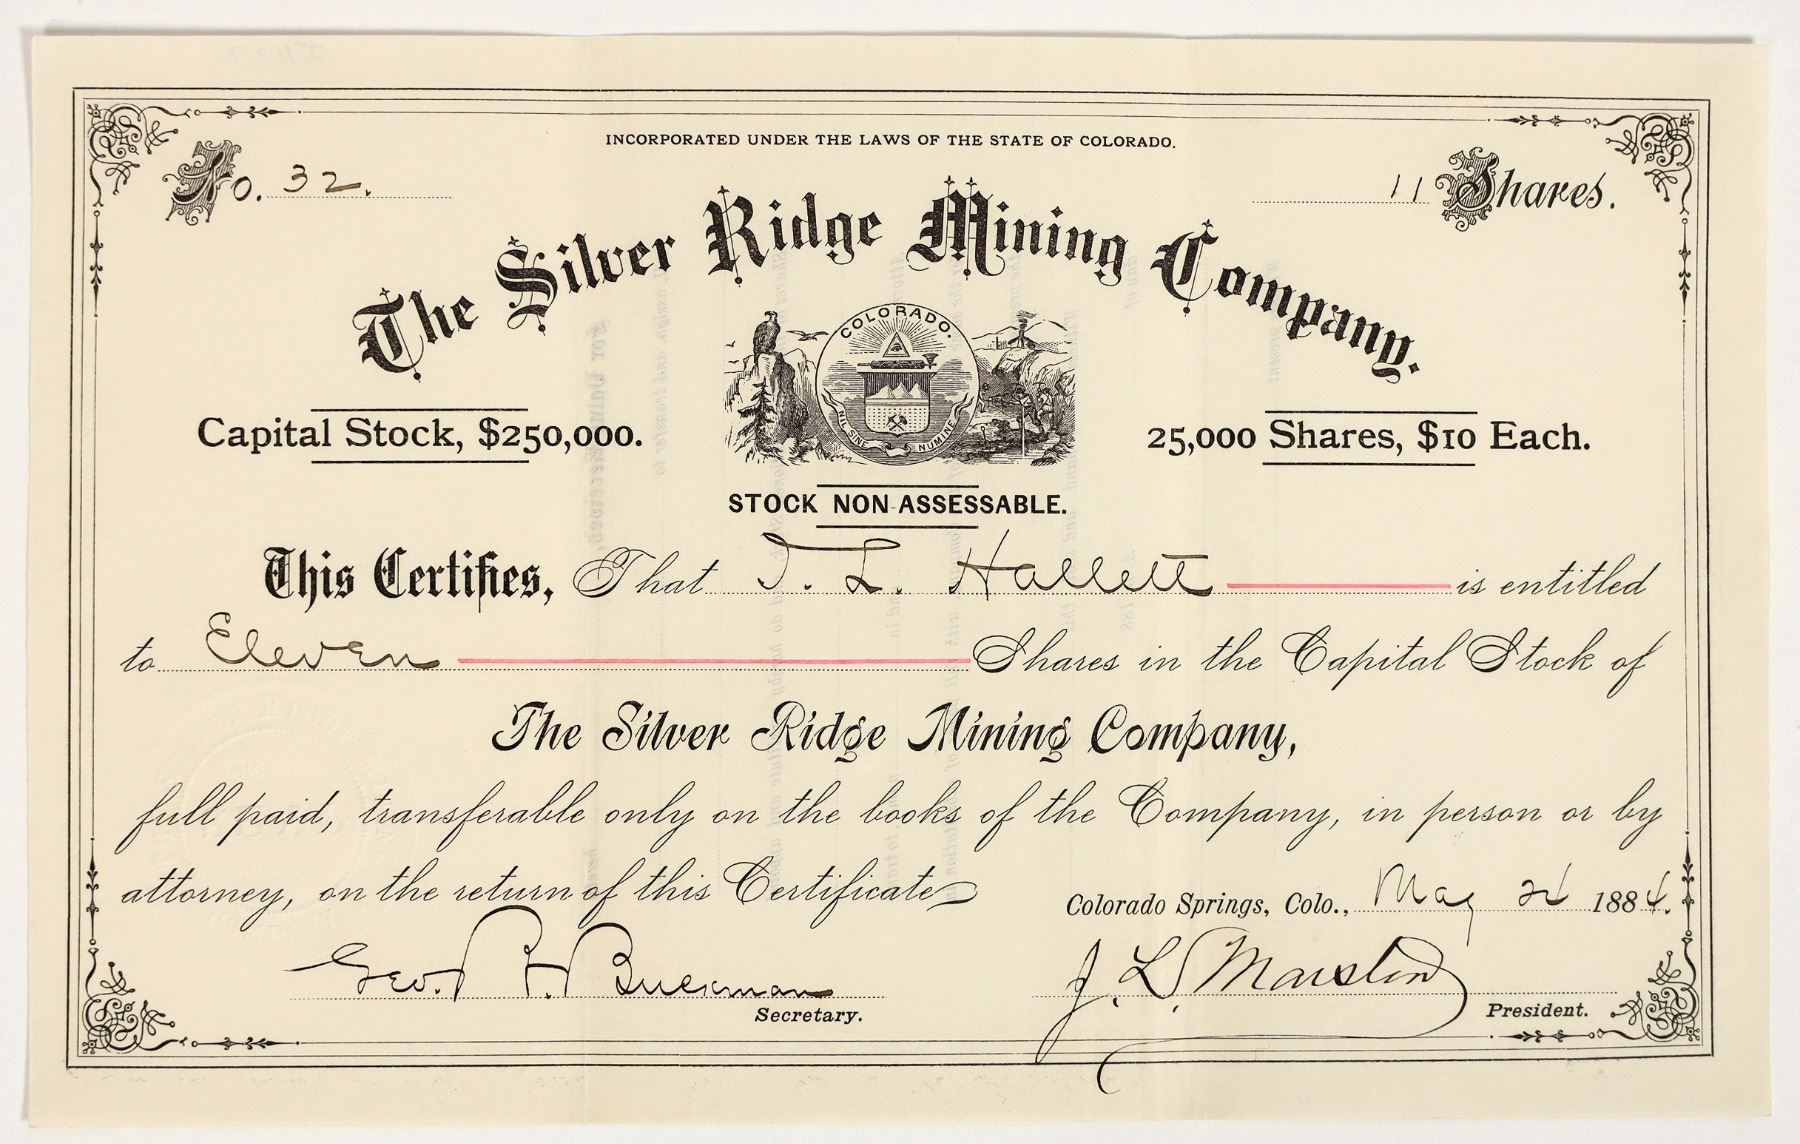 INCORPORATED UNDER THE LAWS OF THE STATE OF COLORADO.
No. 32.
11 Shares.
The Silver Ridge Mining Company.
COLORADO.
NIL SINE NUMINE
Capital Stock, $250,000.
25,000 Shares, $10 Each.
STOCK NON-ASSESSABLE.
This Certifies, That T. L. Hallett is entitled
to Eleven Shares in the Capital Stock of
The Silver Ridge Mining Company,
full paid, transferable only on the books of the Company, in person or by
attorney, on the return of this Certificate
Colorado Springs, Colo., May 24 1884.
Geo. P. H. 
J. L. Marston
Secretary.
President.